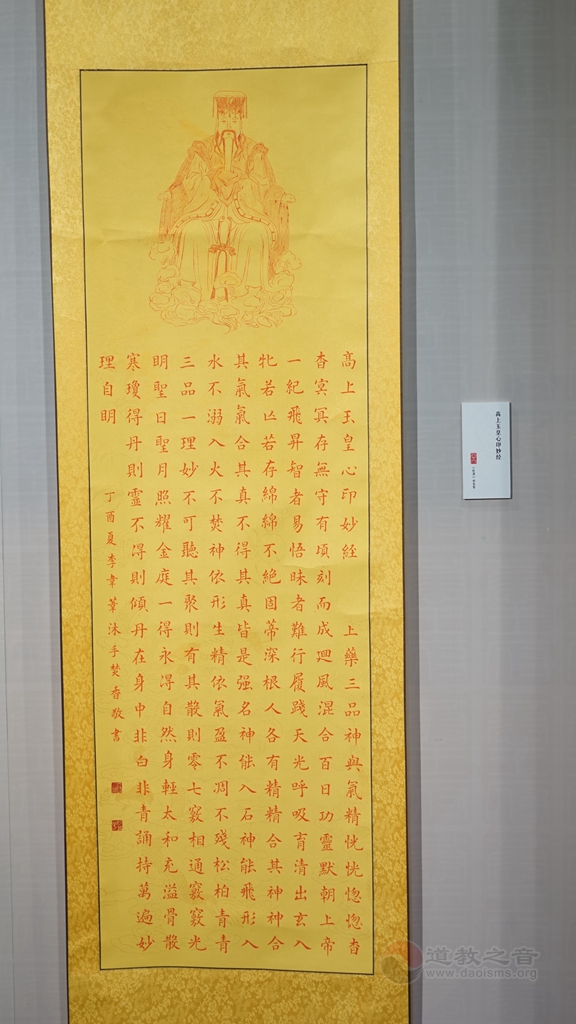 高上玉皇心印妙經 上藥三品神與氣精恍恍惚惚杳
杳冥冥存無守有頃刻而成迴風混合百日功靈默朝上帝
一紀飛昇智者易悟昧者難行履踐天光呼吸育清出玄入
牝若亾若存綿綿不絕固蒂深根人各有精精合其神神合
其氣氣合其真不得其真皆是强名神能入石神能飛形入
水不溺入火不焚神依形生精依氣盈不凋不殘松柏青青
三品一理妙不可聽其聚則有其散則零七竅相通竅竅光
明聖日聖月照耀金庭一得永得自然身輕太和充溢骨散
寒瓊得丹則靈不得則傾丹在身中非白非青誦持萬遍妙
理自明
丁酉夏李 沐手焚香敬書
高上玉皇心印妙经
道教之音
www.daoisms.org